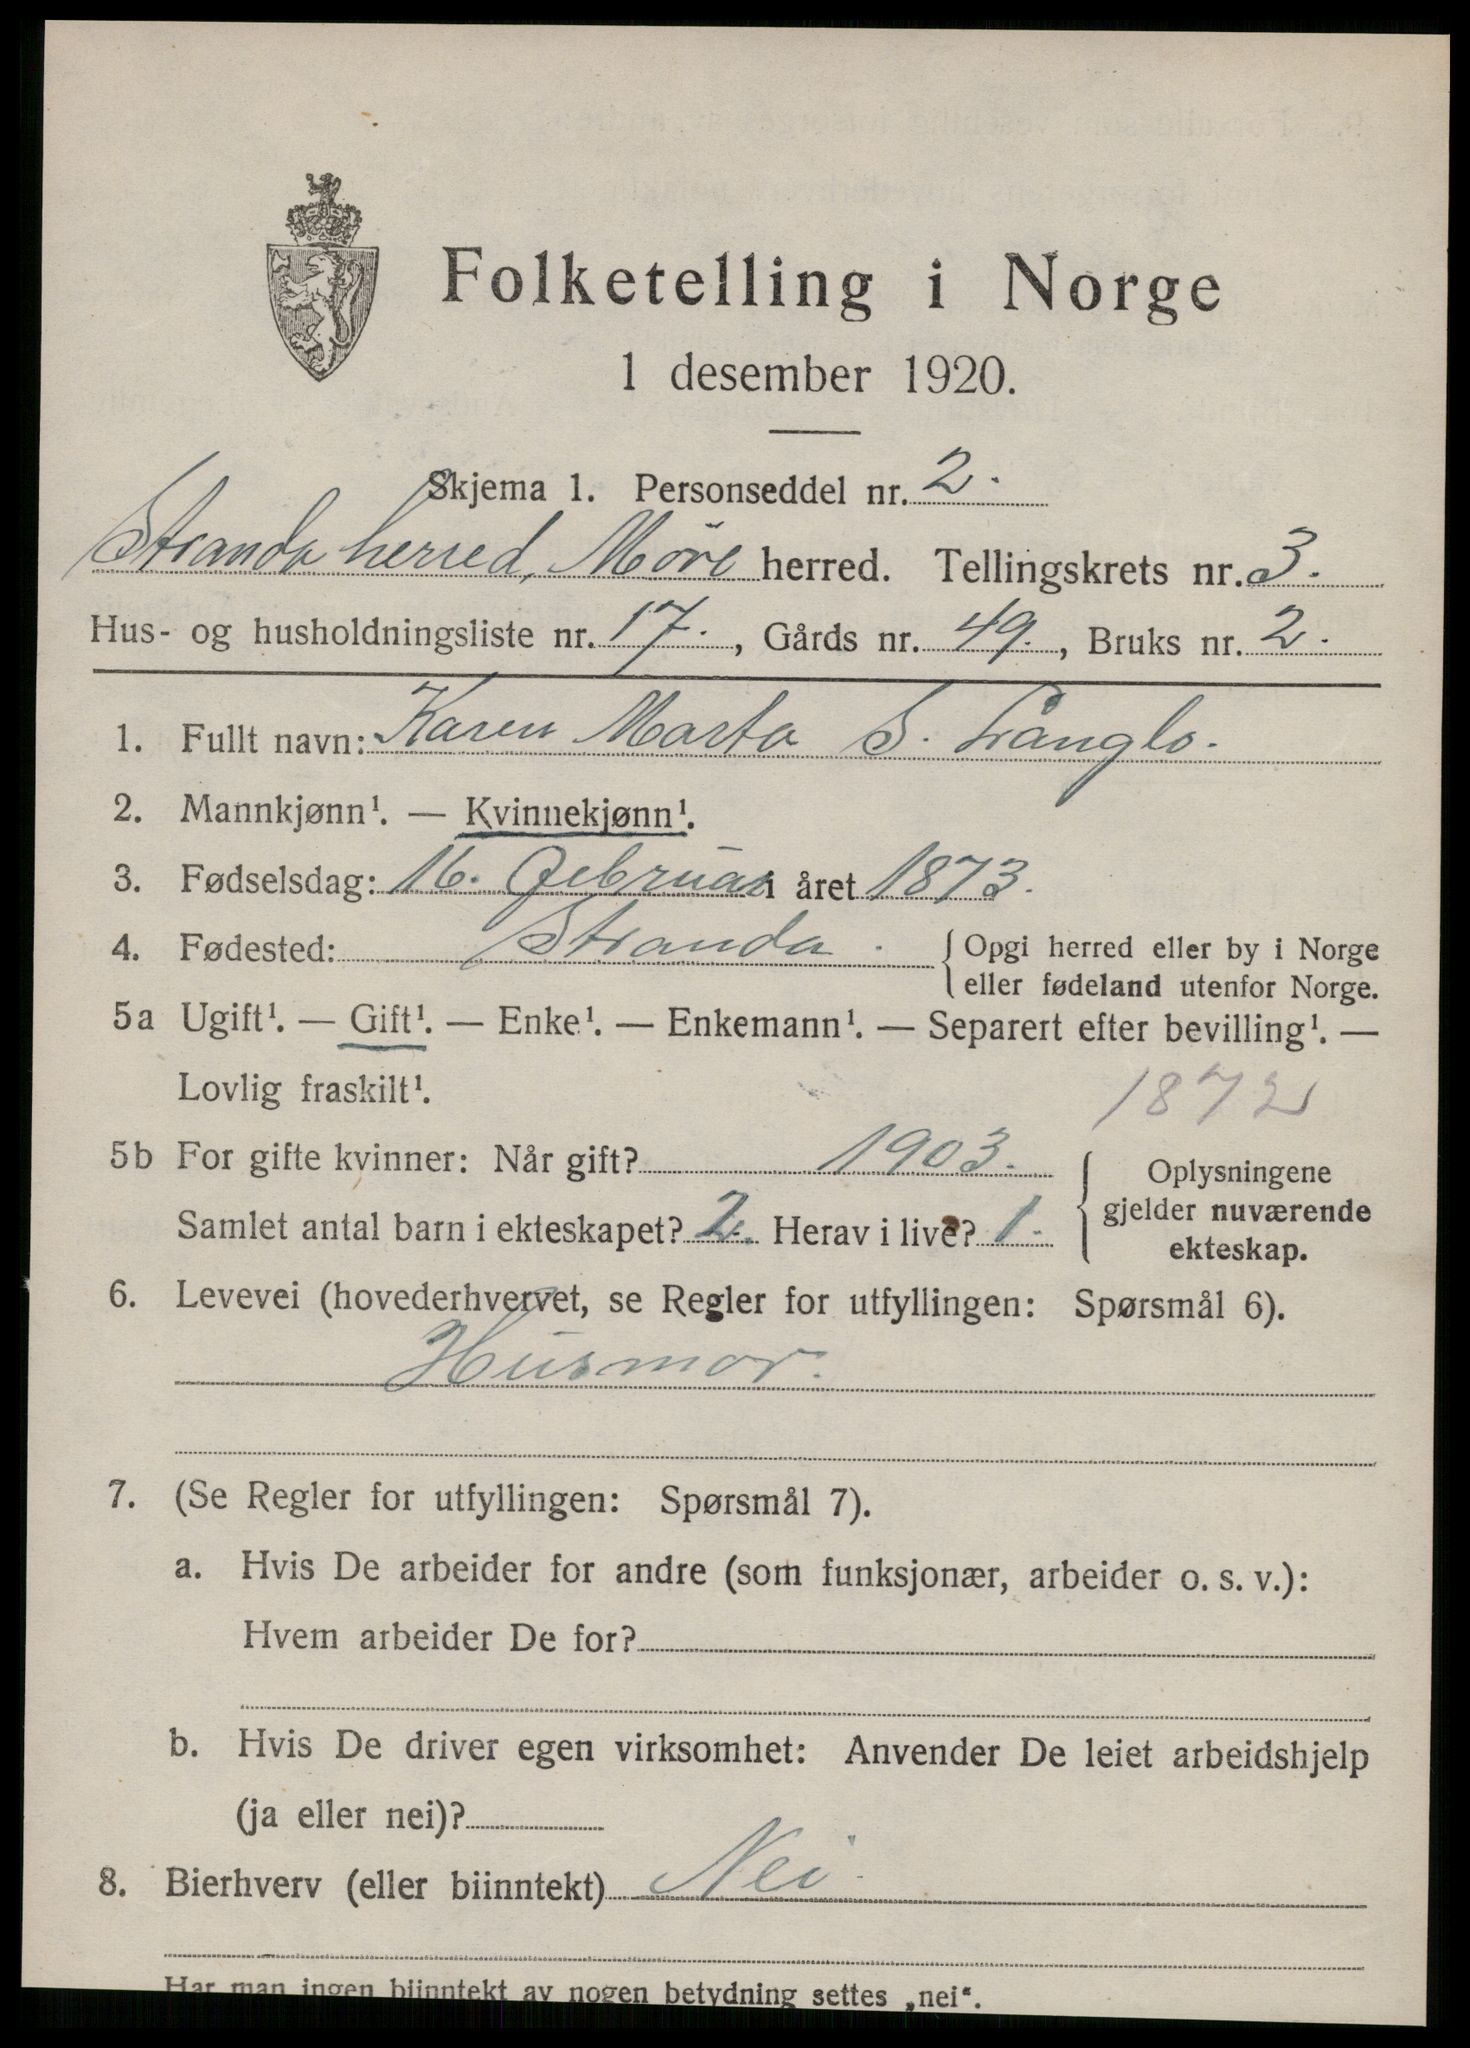 Folketelling i Norge
1 desember 1920.
Skjema 1. Personseddel nr. 2.
Stranda herred, Møre herred. Tellingskrets nr. 3.
Hus- og husholdningsliste nr. 17., Gårds nr. 49., Bruks nr. 2.
1. Fullt navn: Karen Marta S. Langlo.
2. Mannkjønn¹. — Kvinnekjønn¹.
3. Fødselsdag: 16. Februar i året 1873.
4. Fødested: Stranda. { Opgi herred eller by i Norge
eller fødeland utenfor Norge.
5a Ugift¹. — Gift¹. — Enke¹. — Enkemann¹. — Separert efter bevilling¹. —
Lovlig fraskilt¹.
1872
5b For gifte kvinner: Når gift? 1903. { Oplysningene
gjelder nuværende
ekteskap.
Samlet antal barn i ekteskapet? 2. Herav i live? 1.
6. Levevei (hovederhvervet, se Regler for utfyllingen: Spørsmål 6).
Husmor.
7. (Se Regler for utfyllingen: Spørsmål 7).
a. Hvis De arbeider for andre (som funksjonær, arbeider o. s. v.):
Hvem arbeider De for?
b. Hvis De driver egen virksomhet: Anvender De leiet arbeidshjelp
(ja eller nei)?
8. Bierhverv (eller biinntekt) Nei.
Har man ingen biinntekt av nogen betydning settes „nei“.